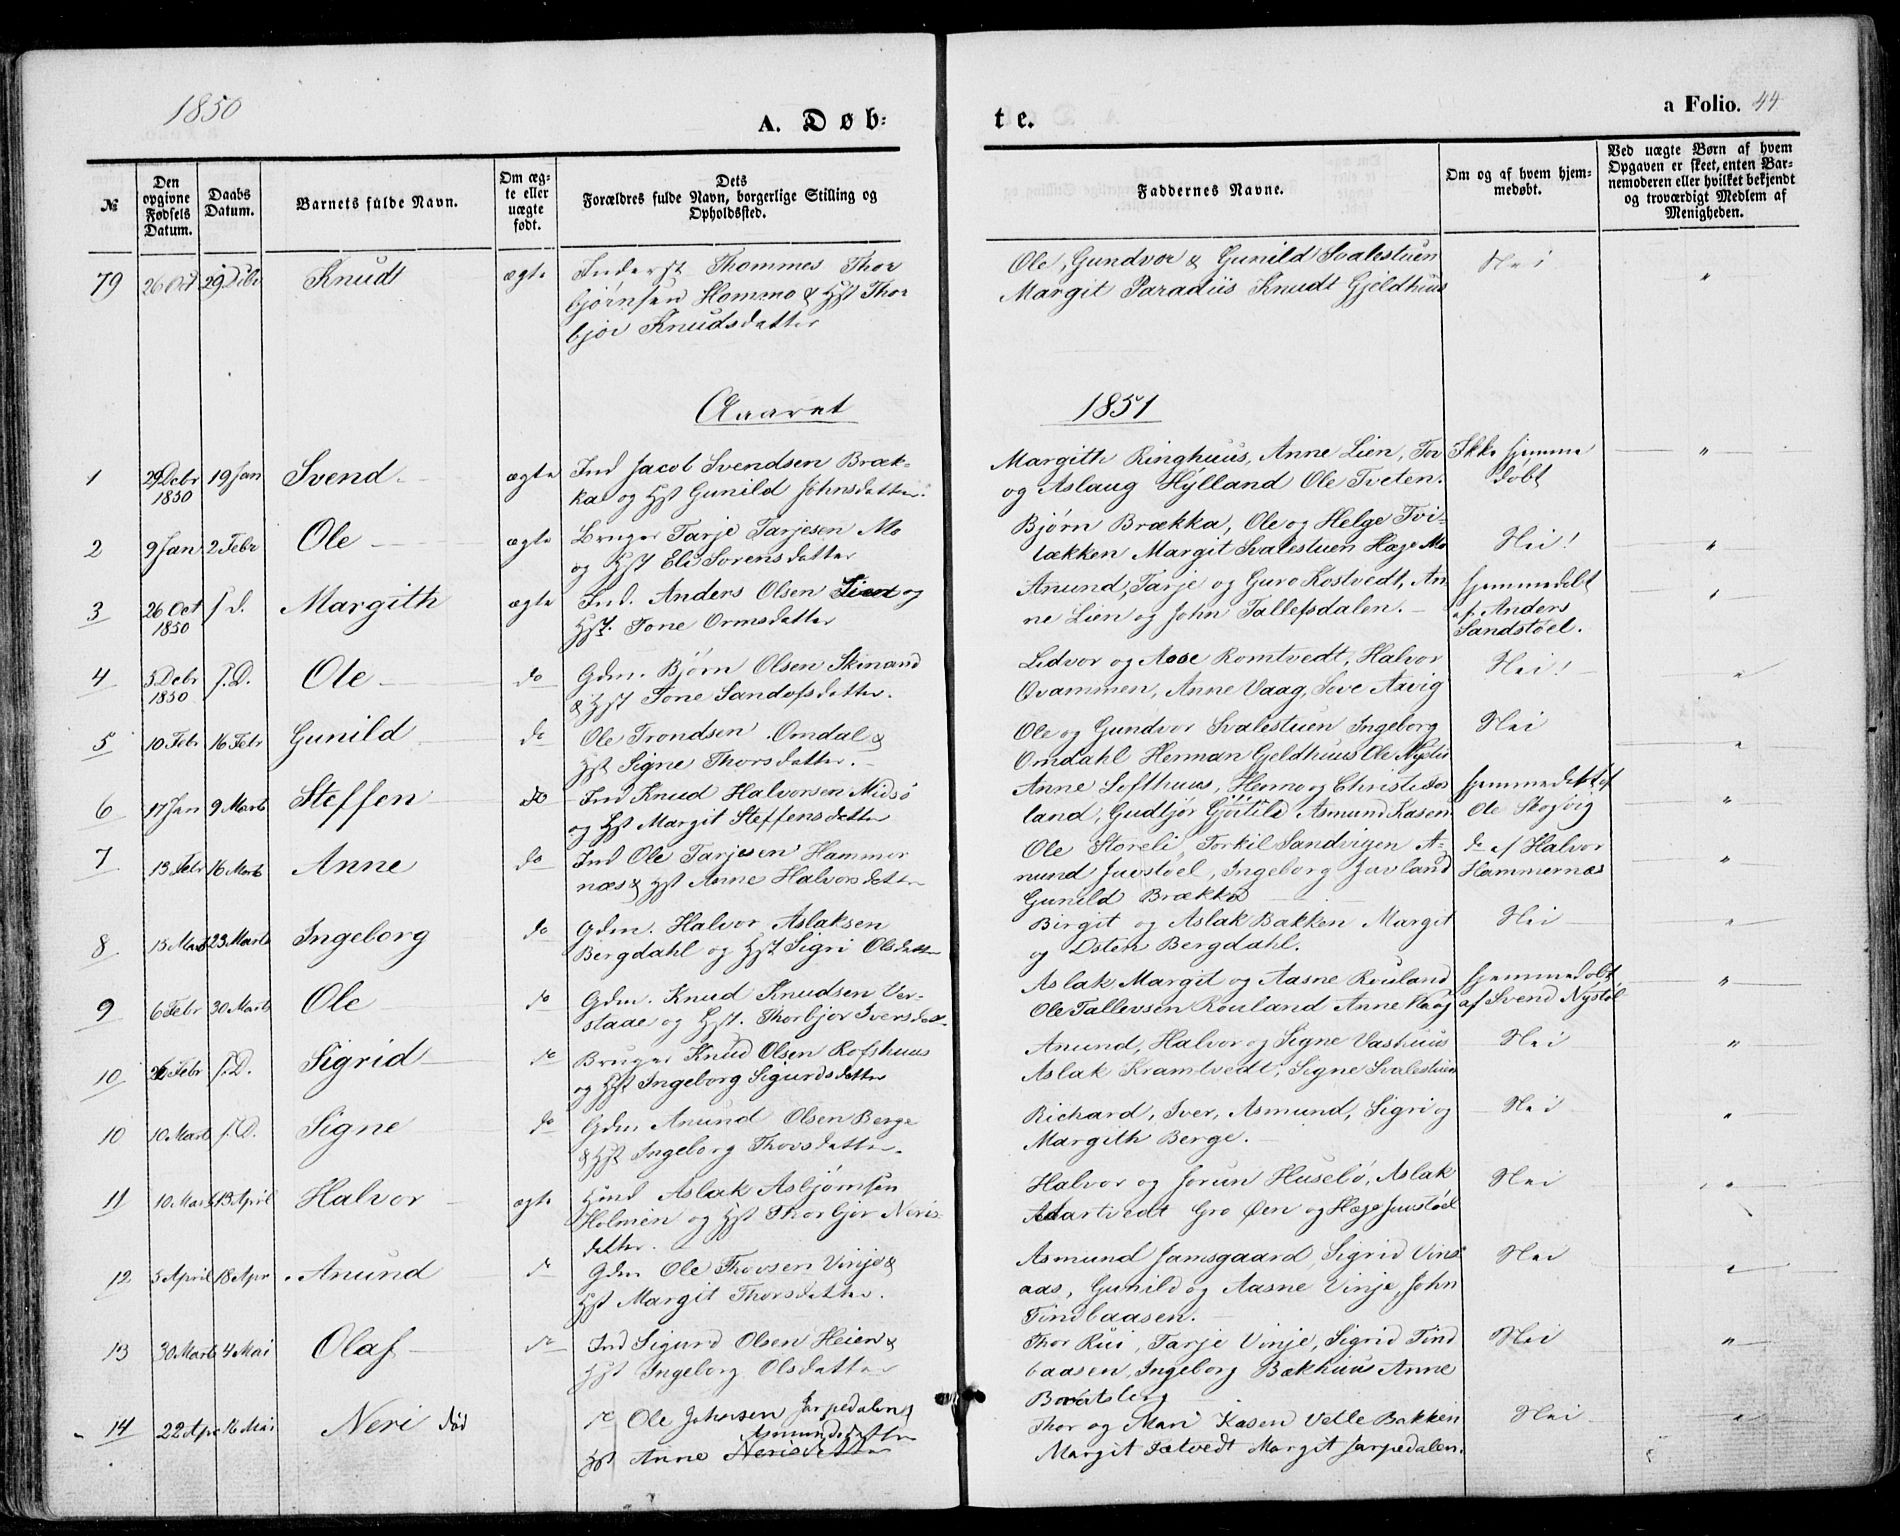 1850
A. Døb-
te.
a Folio. 44
№
Den opgivne Fødsels Datum.
Daabs Datum.
Barnets fulde Navn.
Om ægte eller uægte født.
Dets Forældres fulde Navn, borgerlige Stilling og Opholdssted.
Faddernes Navne.
Om og af hvem hjemmedøbt.
Ved uægte Børn af hvem Opgaven er skeet, enten Barnemoderen eller hvilket bekjendt og troværdigt Medlem af Menigheden.
79 26 Oct 29 Debr Knudt ægte Inderst Thommes Thor
bjørnsen Hommo & Hst Thor
bjør Knudsdatter
Ole, Gundvor & Gunild Svalestuen Nei "
Margit Paradiis Knudt Gjeldhuus
Aaaret 1851
1 29 Debr 1850 19 Jan Svend ægte Ind Jacob Svendsen Bræk-
ka og Hst Gunild Johnsdatter.
Margith Ringhuus, Anne Lien, Tov Ikke hjemme "
og Aslaug Hylland Ole Tveten. døbt
2 9 Jan 2 Febr Ole ægte Bruger Tarje Tarjesen Mo
og Hst Eli Sorensdatter
Bjørn Brækka, Ole og Helge Tvi-
tækken Margit Svalestuen Hæge Mo Nei! "
3 26 Oct 1850 s. d. Margith ægte Ind. Anders Olsen Lien og
Hst. Tone Ormsdatter
Anund, Tarje og Guro Kostvedt, An- hjemmedøbt "
ne Lien og John Tallefsdalen. af Anders
Sandstøel.
4 5 Debr 1850 s. D. Ole do Gdm. Bjørn Olsen Skinand
& Hst Tone Sandofsdatter.
Lidvor og Aase Romtvedt, Halvor Nei! "
Qvammen, Anne Vaag, Tove Aavig
5 10 Febr 16 Febr Gunild do Ole Trondsen Omdal &
Hst Signe Thorsdatter.
Ole og Gundvor Svalestuen Ingeborg Nei "
Omdahl Herman Gjeldhuus Ole Nystu
6 17 Jan 9 Marts Steffen do Ind Knud Halvorsen Midsø
og Hst Margit Steffensdatter
Anne Lofthuus, Henno og Christi Jos hjemmedøbt af "
land, Gudbjør Asmund Kasen Ole Skogvig
7 13 Febr 16 Marts Anne do Ind Ole Tarjesen Hammer
næs & Hst Anne Halvorsdatter
Ole Storeli, Torkil Sandvigen A- do af Halvor "
nund Juvstøel, Ingeborg Javland Hammernæs
Gunild Brækka
8 15 Marts 23 Marts Ingeborg do Gdm. Halvor Aslaksen
Bergdahl og Hst. Sigri Olsdatter
Birgit og Aslak Bakken Margit Nei "
og Østen Bergdahl.
9 6 Febr 30 Marts Ole do Gdm. Knud Knudsen Ver-
staae og Hst. Thorbjør Iversdatter
Aslak Margit og Aasne Rouland hjemmedøbt "
Ole Tallevsen Rouland Anne Vaag af Svend Nystøl
10 26 Febr s. D. Sigrid do Bruger Knud Olsen Rofshuus
og Hst Ingeborg Sigurdsdatter
Anund, Halvor og Signe Vashuus Nei "
Aslak Kramtvedt, Signe Svalestuen
10 10 Marts s. D. Signe do Gdm Anund Olsen Berge
& Hst Ingeborg Thovsdatter.
Richard, Iver, Asmund, Sigri og Nei "
Margith Berge.
11 10 Marts 13 April Halvor ægte Hmd Aslak Asbjørnsen
Holmen og Hst Thorbjør Neris-
datter.
Halvor og Jorun Husebø, Aslak Nei "
Aartvedt Gro Øen og Hæge Juvstøel
12 5 April 18 Apr Anund do Gdm Ole Thovsen Vinje &
Hst Margit Thorsdatter.
Asmund Jamsgaard, Sigrid Vins- Nei "
aas, Gunild og Aasne Vinje, John
Tindbaasen.
13 30 Marts 4 Mai Olaf do Ind Sigurd Olsen Heien &
Hst Ingeborg Olsdatter
Thor Rui, Tarje Vinje, Sigrid Tind Nei "
baasen, Ingeborg Bakhuus Anne
14 22 Apr 16 Mai Neri død do Ole Johnsen Jarpedalen &
Asmundsdatter
Hst Anne Nerisdatter
Thor og Mari Kasen Vetle Bakken Nei "
Margit Sætvedt Margit Jarpedalen.